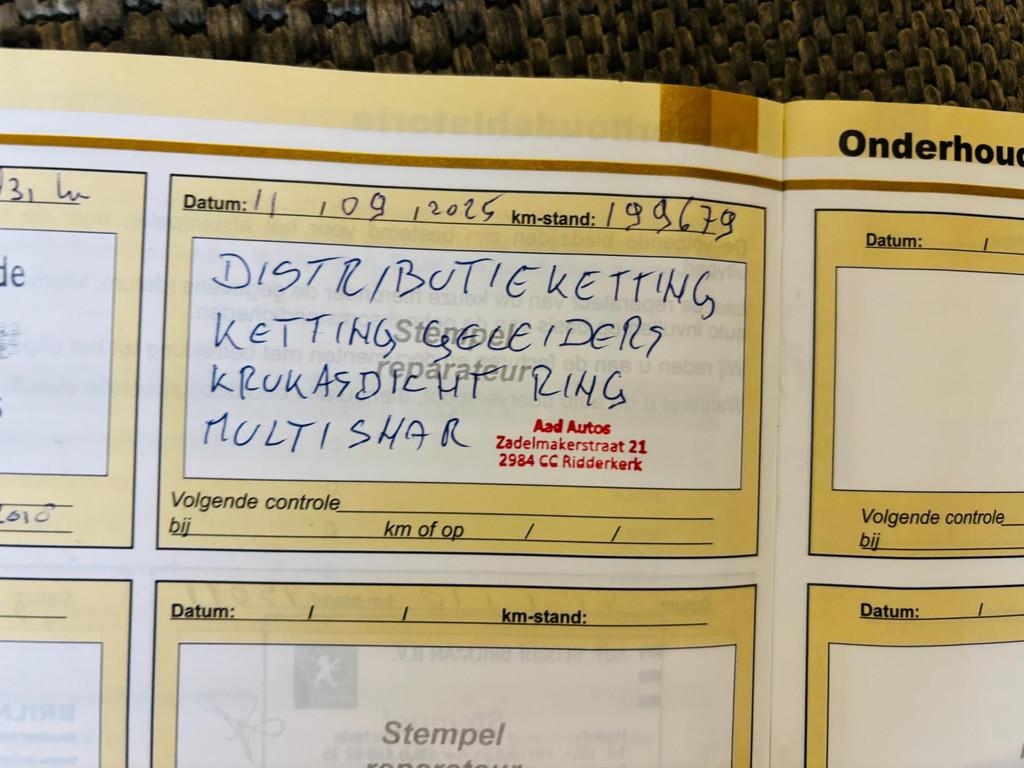 Onderhoud
Datum: 11 , 09 , 2025 km-stand: 199679
DISTRIBUTIEKETTING
KETTING GELEIDERS
KRUKASDICHT RING
MULTISNAR
Stempel
reparateur
Aad Autos
Zadelmakerstraat 21
2984 CC Ridderkerk
Volgende controle
bij km of op / /
Datum: /
Volgende controle
bij
de
Datum: / / km-stand:
Stempel
reparateur
Datum: /